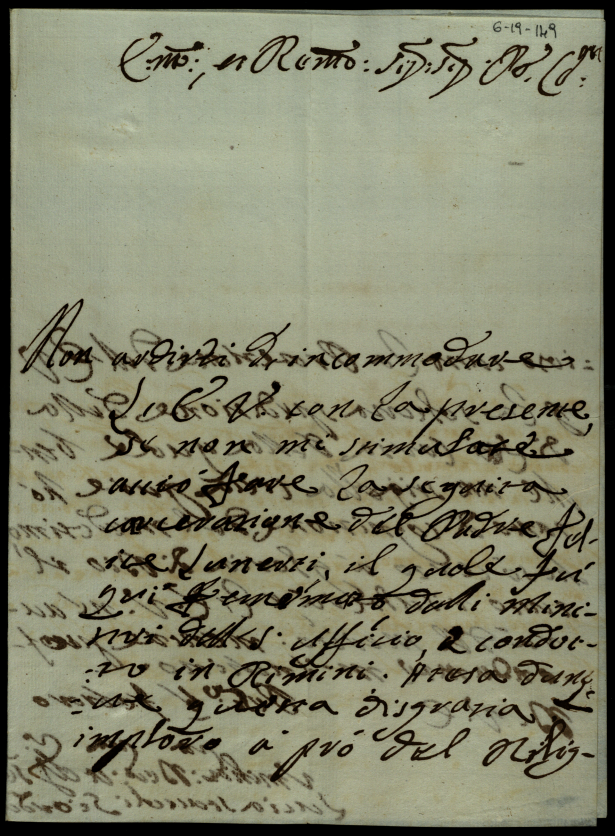 6-19-149
Em̃o:, e Rem̃o: Sig: Sig: Pñ. Col:mo
Non ardirei d'incommodare
L'E V con la presente,
se non mi stimolasse
a ciò fare la seguita
carcerazione del Padre Fel-
ice, il quale fu
qui dalli Mini-
stri del S. Uffizio, e condot-
to in Rimini. Atesa dunq-
ue questa disgrazia
imploro a prò del Relig-